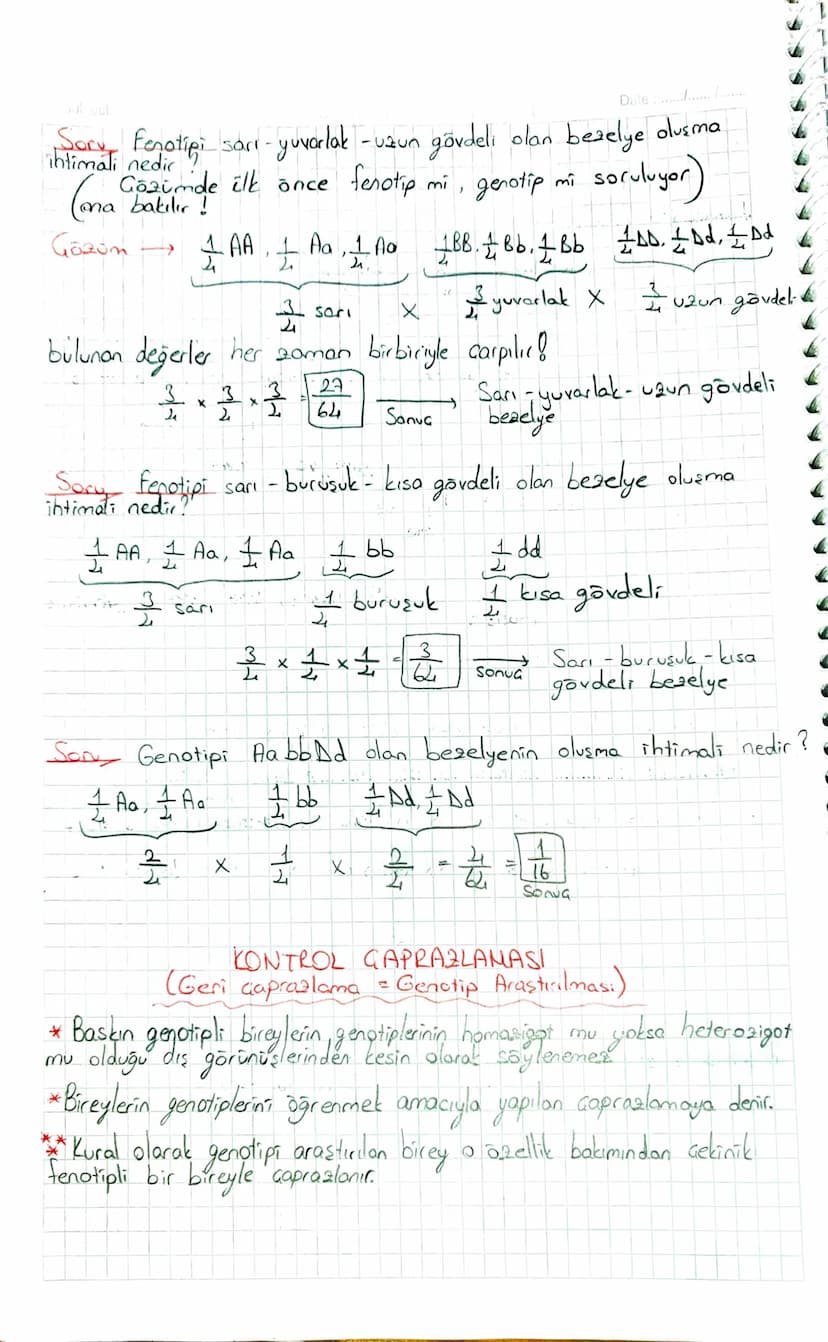 Date ....../....../......
Soru Fenotipi sarı-yuvarlak-uzun gövdeli olan bezelye oluşma
ihtimali nedir?
(Çözümde ilk önce fenotip mi, genotip mi soruluyor
ona bakılır!)
Çözüm → 1/4 AA, 1/4 Aa, 1/4 Aa 1/4 BB, 1/4 Bb, 1/4 Bb 1/4 DD, 1/4 Dd, 1/4 Dd
3/4 sarı x 3/4 yuvarlak x 3/4 uzun gövdeli
bulunan değerler her zaman birbiriyle çarpılır!
3/4 x 3/4 x 3/4 = 27/64 → Sonuç Sarı-yuvarlak-uzun gövdeli
bezelye
Soru Fenotipi sarı-buruşuk-kısa gövdeli olan bezelye oluşma
ihtimali nedir?
1/4 AA, 1/4 Aa, 1/4 Aa 1/4 bb 1/4 dd
3/4 sarı 1/4 buruşuk 1/4 kısa gövdeli
3/4 x 1/4 x 1/4 = 3/64 → sonuç Sarı-buruşuk-kısa
gövdeli bezelye
Soru Genotipi AabbDd olan bezelyenin oluşma ihtimali nedir?
1/4 Aa, 1/4 Aa 1/4 bb 1/4 Dd, 1/4 Dd
2/4 x 1/4 x 2/4 = 4/64 = 1/16
Sonuç
KONTROL ÇAPRAZLAMASI
(Geri çaprazlama = Genotip Araştırılması)
* Baskın genotipli bireylerin, genotiplerinin homozigot mu yoksa heterozigot
mu olduğu dış görünüşlerinden kesin olarak söylenemez
* Bireylerin genotiplerini öğrenmek amacıyla yapılan çaprazlamaya denir.
*** Kural olarak genotipi araştırılan birey o özellik bakımından çekinik
fenotipli bir bireyle çaprazlanır.